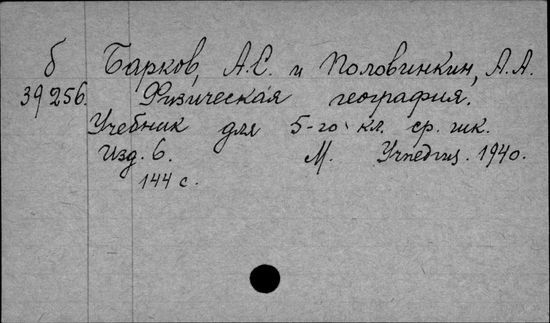 б Барков, А.С. и Половинкин, А.А.
39256. Физическая география.
Учебник для 5-го кл. ср. шк.
Изд. 6. М. Учпедгиз. 1940.
144 с.